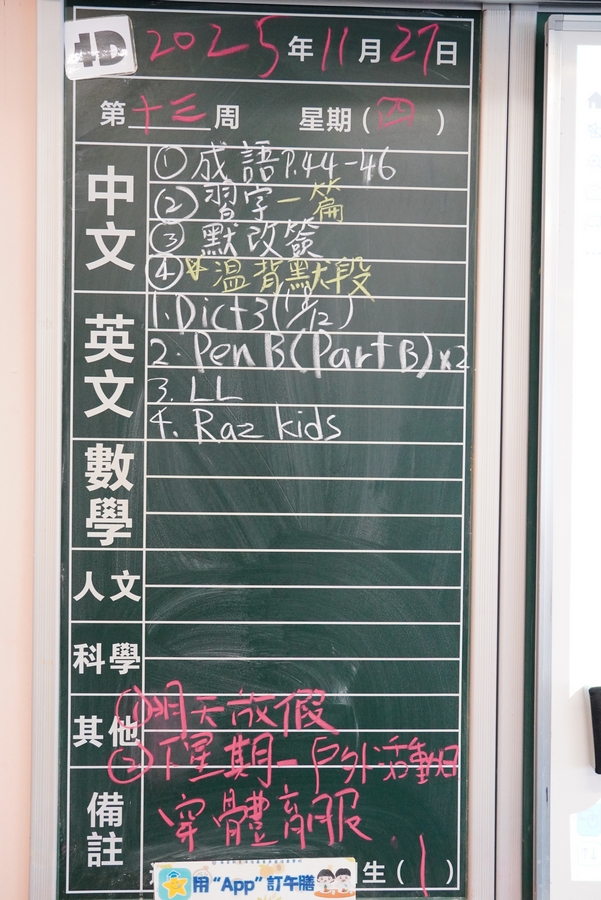 4D
2025年11月27日
第十三周 星期(四)
中文
① 成語 P.44-46
② 習字一篇
③ 默改簽
④ 溫背默段
英文
1. Dict 3 (1/12)
2. Pen B (Part B) x2
3. LL
4. Raz kids
數學
人文
科學
其他
① 明天放假
② 下星期一戶外活動日
穿體育服
備註
生(1)
用“App”訂午膳